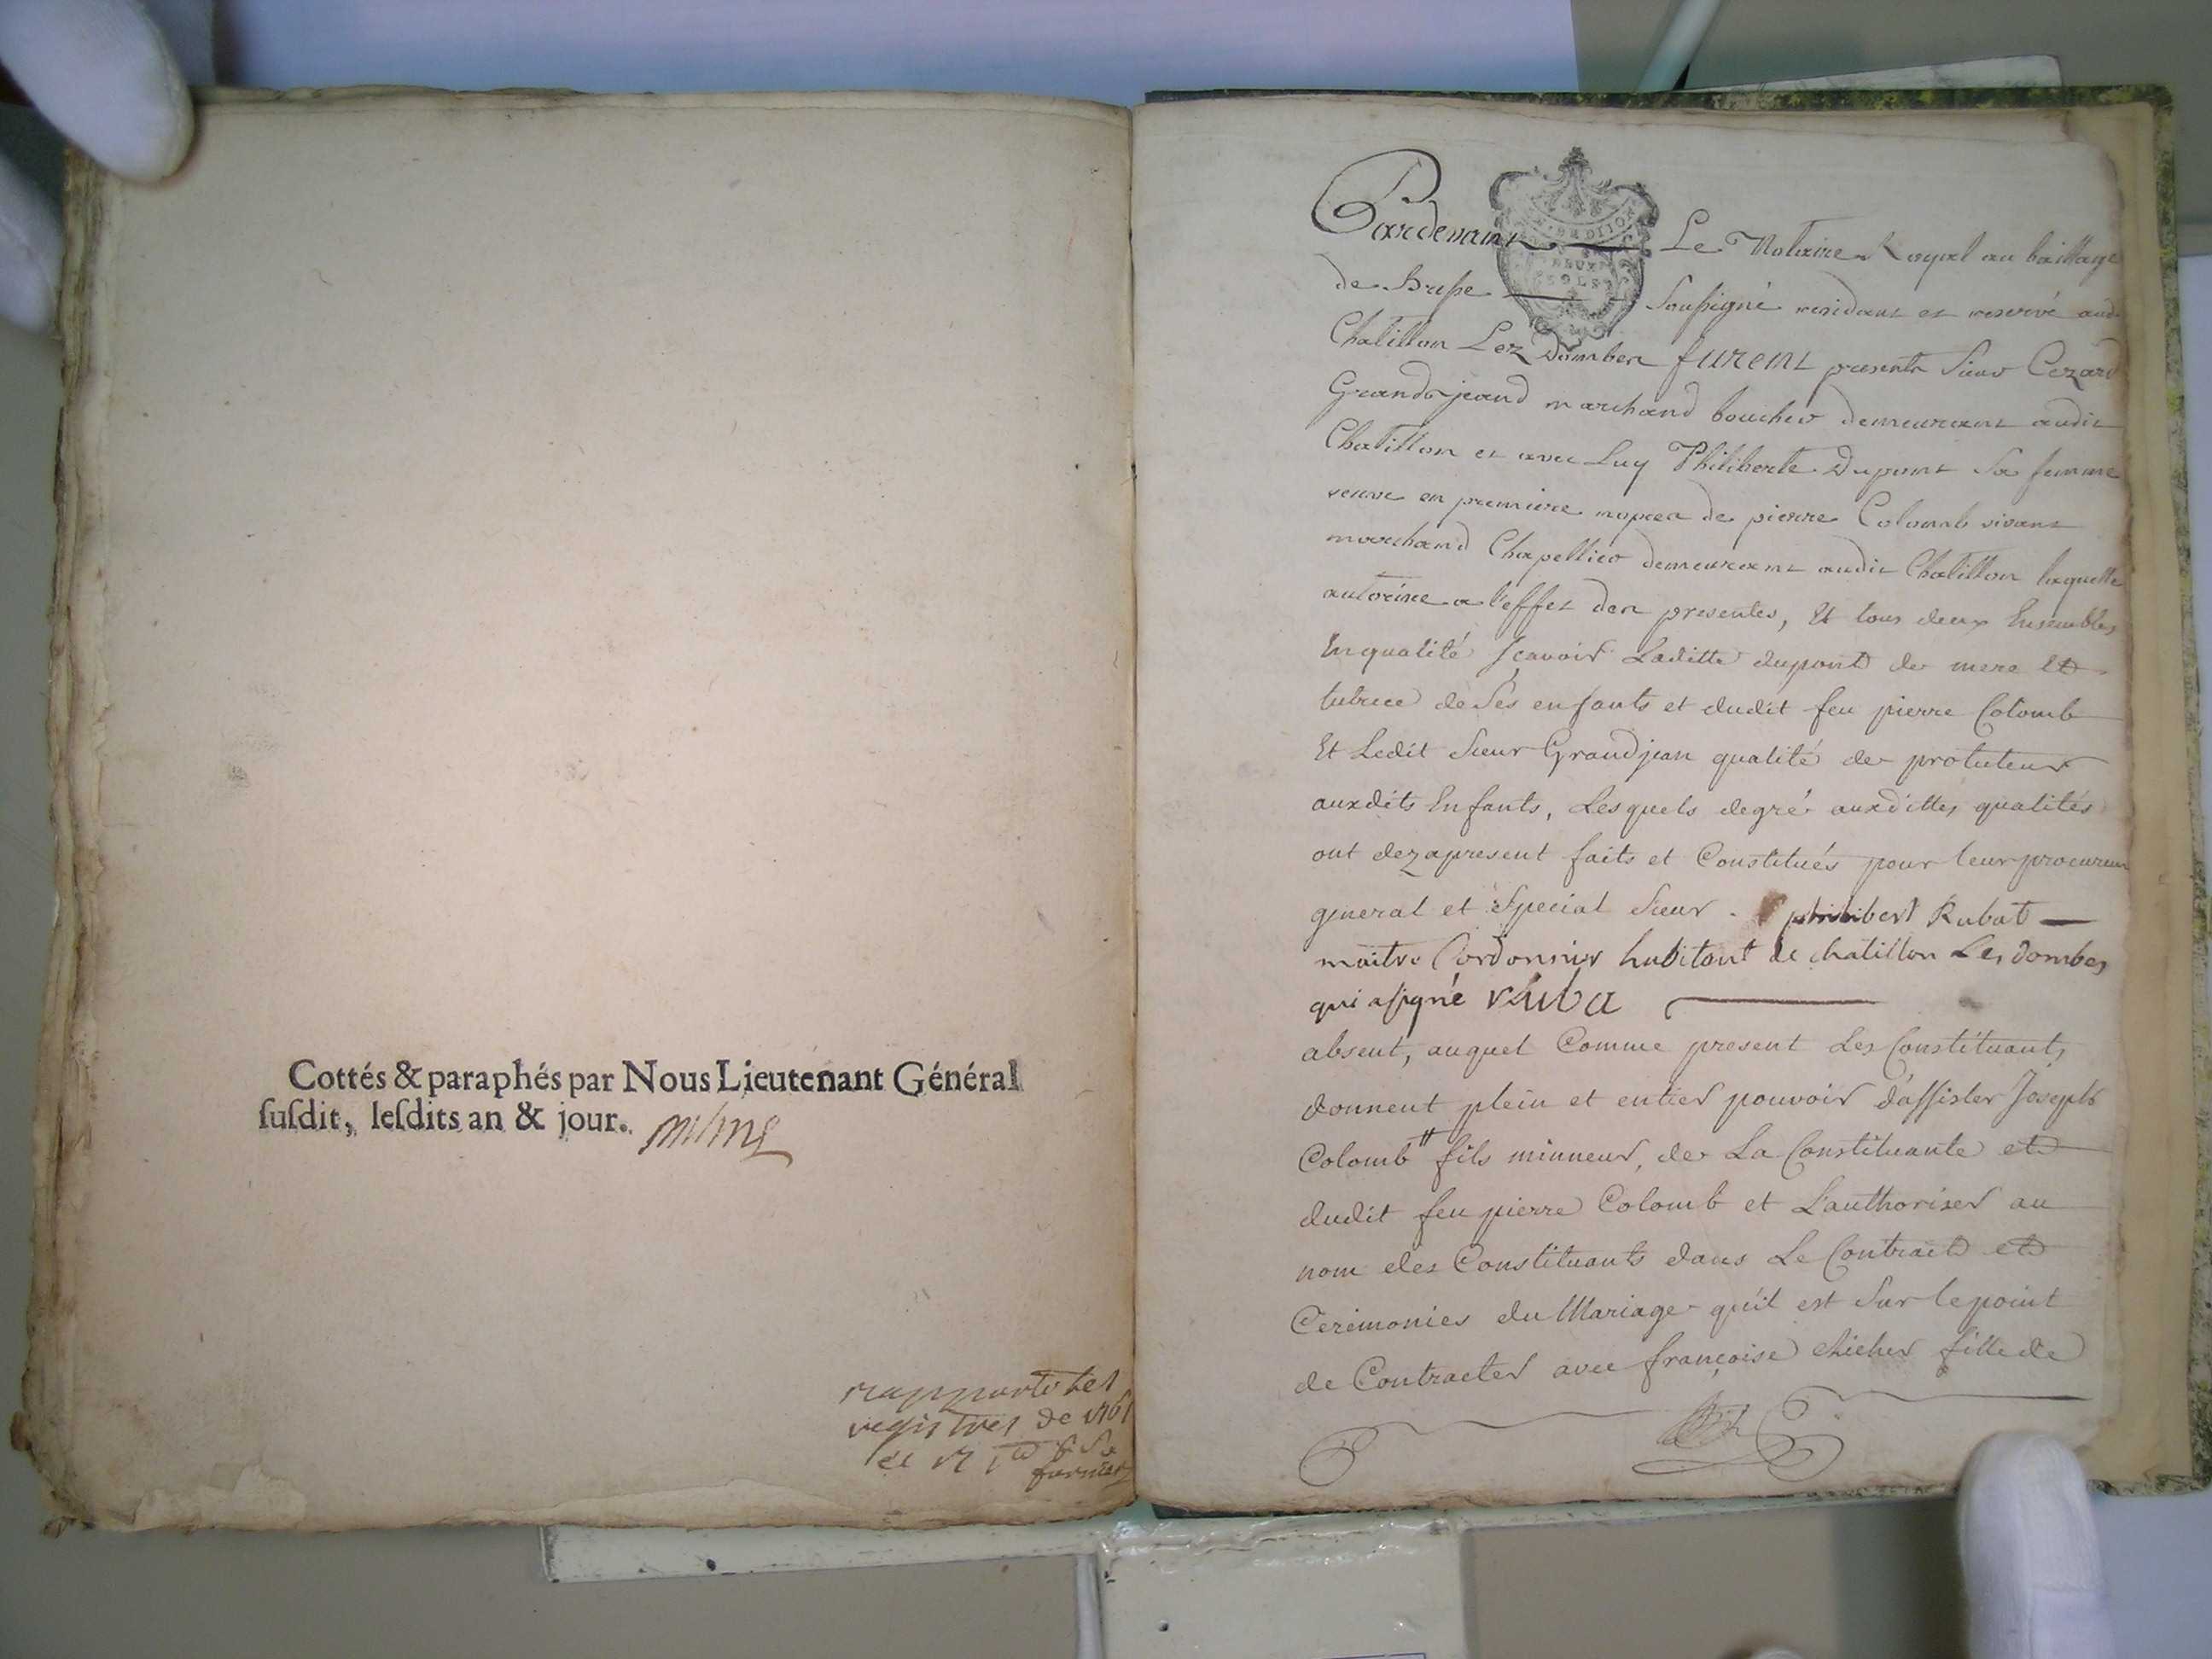 Cottés & paraphés par Nous Lieutenant Général
ſuſdit, leſdits an & jour.
rapporté les
registres de 1761
Pardevant Le Notaire Royal au baillage
de Bresse Soussigné residant et reservé aud
Chatillon Lez Dombes furent presents Sieur Cezard
Grandjeand marchand boucher demeurant audit
Chatillon et avec Luy Philiberte Dupont Sa femme
veuve en premiere nopces de pierre Colomb vivant
marchand Chapellier demeurant audit Chatillon laquelle
autorise a l'effet des presentes, Et tous deux Ensembles
En qualité sçavoir Laditte dupont de mere Et
tutrice de Ses enfants et dudit feu pierre Colomb
Et Ledit Sieur Grandjean qualité de protuteur
auxdits Enfants, Lesquels degré auxdittes qualités
ont dez apresent faits et Constitués pour leur procureur
general et Special Sieur philibert Rubat
maitre Cordonnier habitant de chatillon Les dombes
qui a signé rhuba
absent, auquel Comme present Les Constituants
donnent plein et entier pouvoir d'assister Joseph
Colomb fils minneur, de La Constituante et
dudit feu pierre Colomb et L'authoriser au
nom des Constituants dans Le Contract et
Ceremonies du Mariage qu'il est Sur le point
de Contracter avec françoise chicher fille de